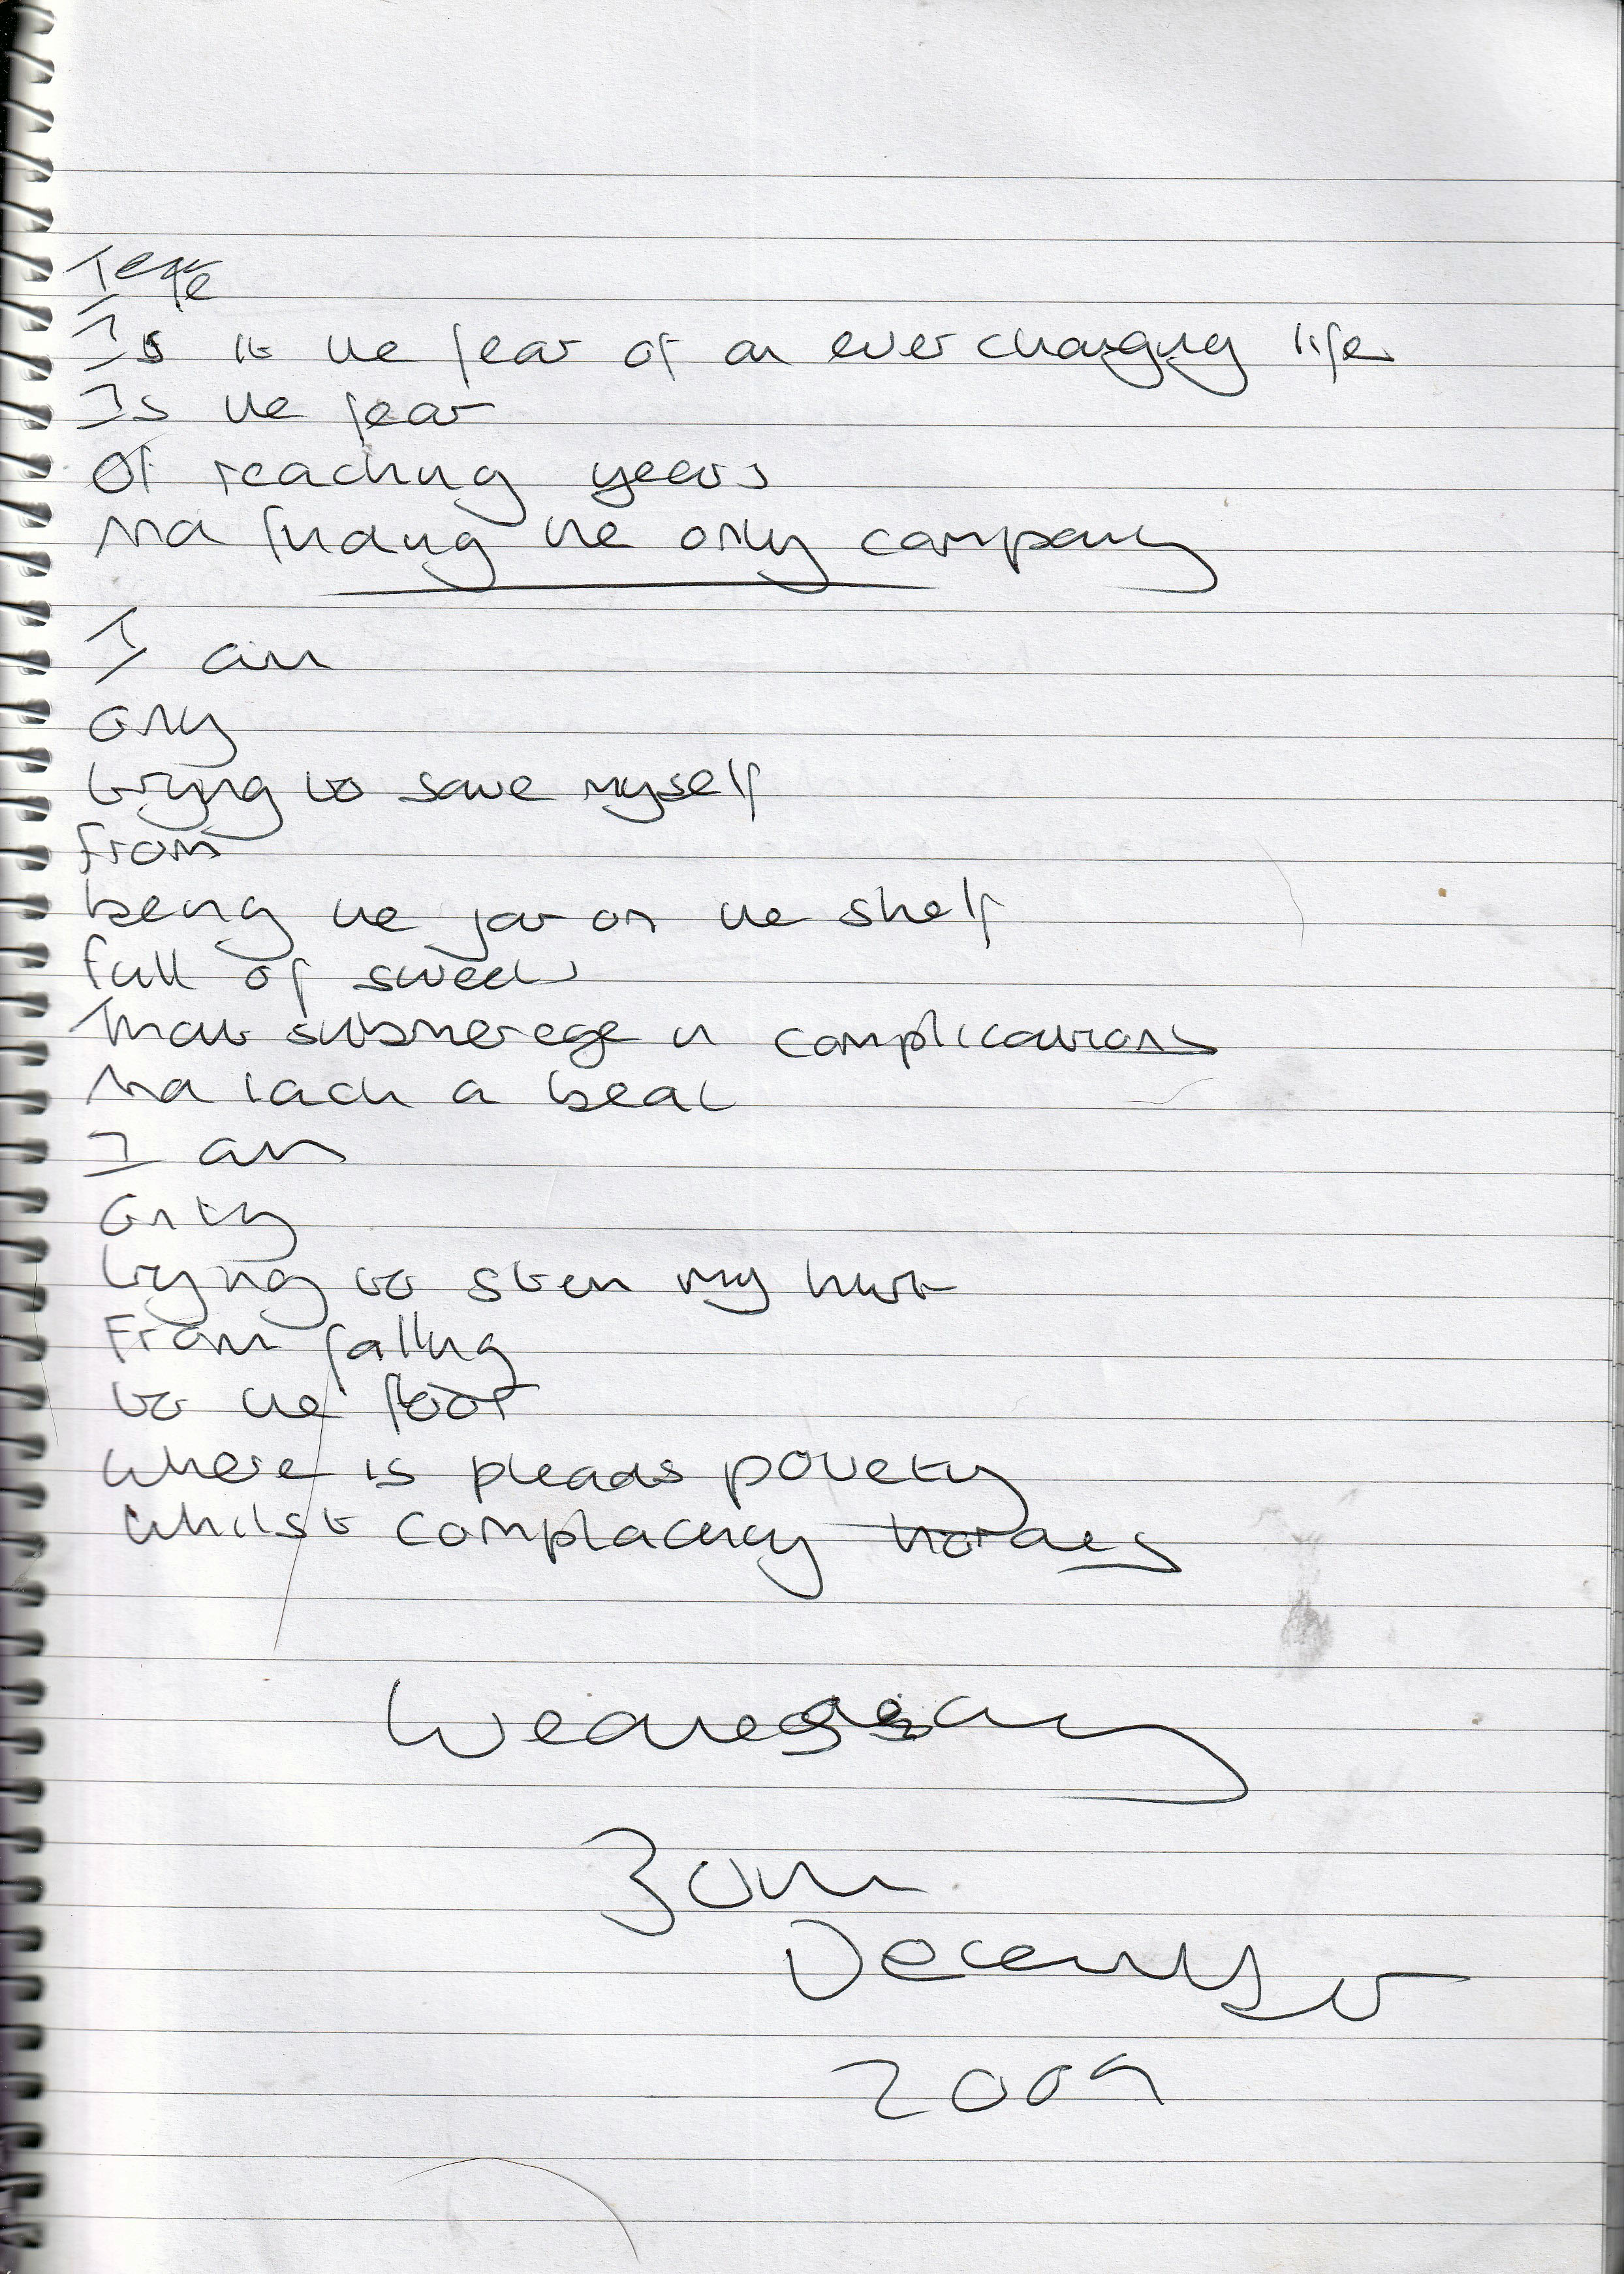 Is it the fear of an ever changing life
Is the fear
Of reaching years
And finding the only company
I am
Only
trying to save myself
from
being the jar on the shelf
full of sweets
That submerege in complications
And lack a beat
I am
Only
trying to stem my hurt
From falling
to the floor
where is pleads poverty
whilst complacency
Wednesday
30th
December
2009